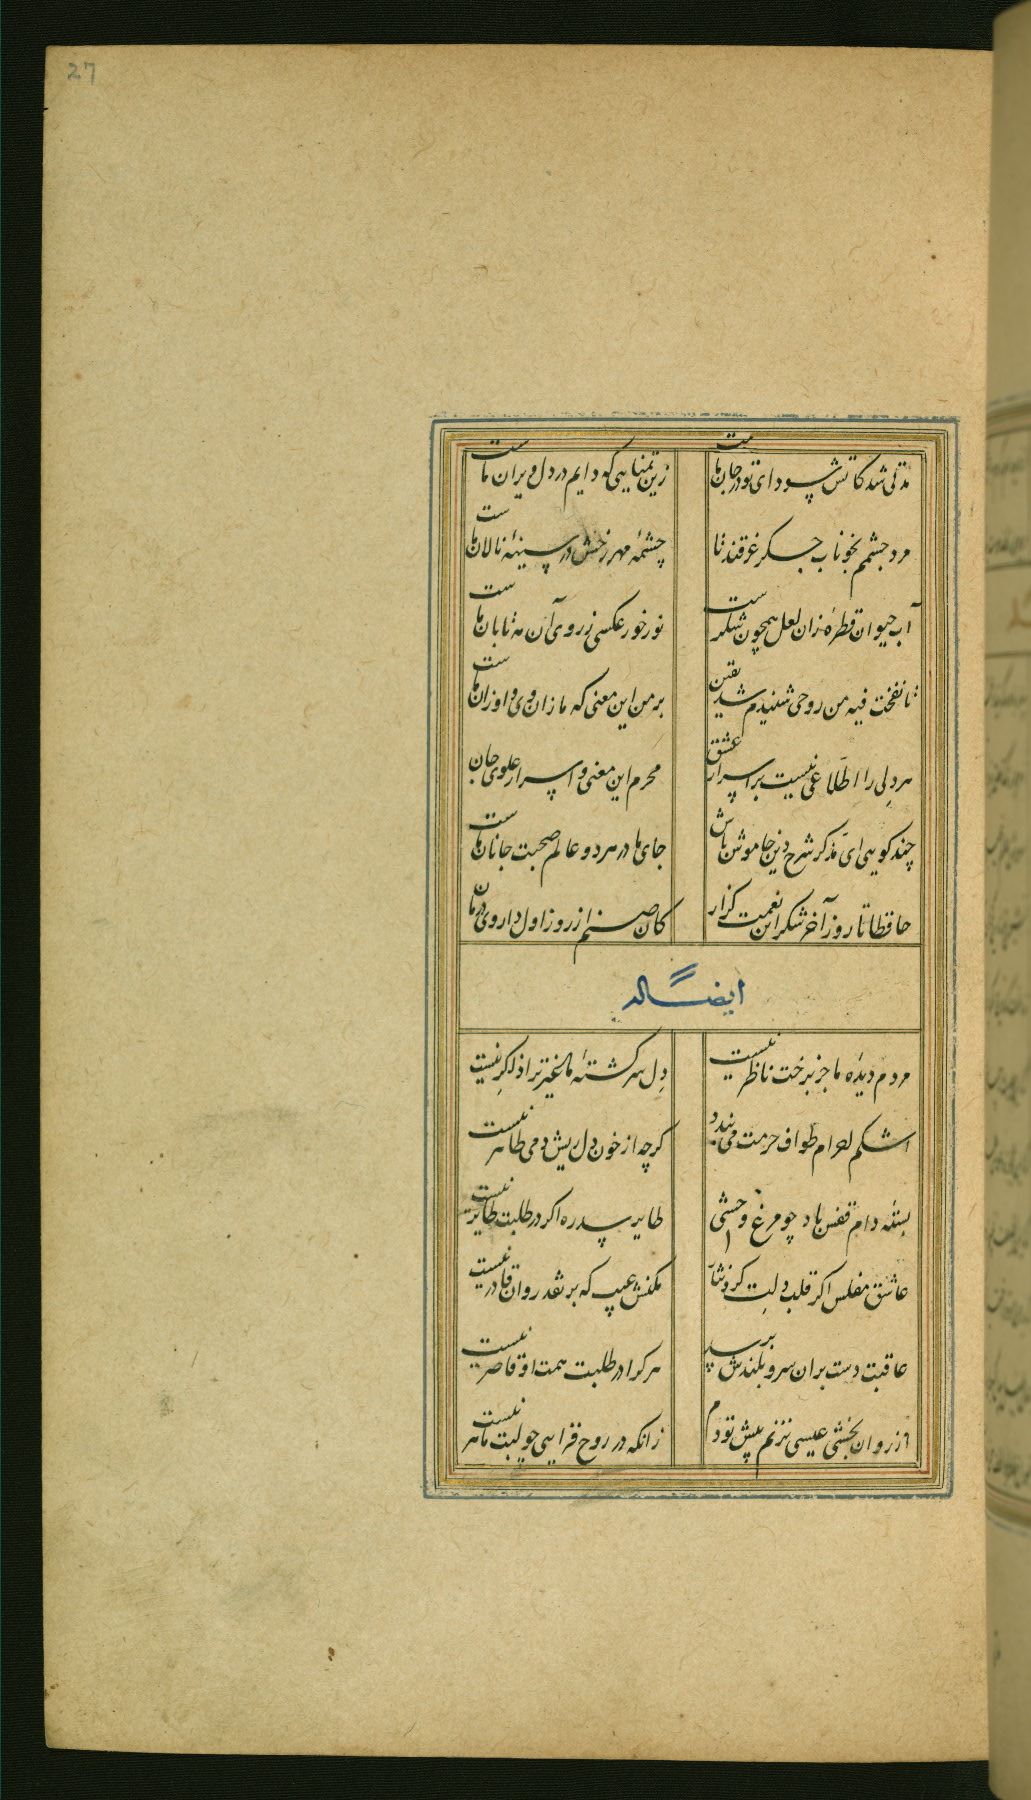 27
مدتی شد کاتش سودای تو در جان ماست
زین تمنایی که دایم در دل ویران ماست
مردم چشمم بخوناب جگر غرقند تا
چشمهٔ مهر رخش در سینهٔ نالان ماست
آب حیوان قطرهٔ زان لعل همچون شکرست
نور خور عکسی ز روی آن مه تابان ماست
تا نفخت فیه من روحی شنیدم شد یقین
بر من این معنی که ما زان وی و او زان ماست
هر دلی را اطلاعی نیست بر اسرار عشق
محرم این معنی و اسرار علوی جان ماست
چند کویی ای مذکر شرح دین خاموش باش
جای ما در هر دو عالم صحبت جانان ماست
حافظا تا روز آخر شکر این نعمت گزار
کان صنم از روز اول داروی درمان ماست
ایضاً له
مردم دیدهٔ ما جز برخت ناظر نیست
دل سرکشتهٔ ما غیر ترا ذاکر نیست
اشکم احرام طواف حرمت می بندد
کرچه از خون دل ریش دمی طاهر نیست
بستهٔ دام قفس باد چو مرغ وحشی
طایر سدره اکر در طلبت طایر نیست
عاشق مفلس اکر قلب دلت کرد نثار
مکنش عیب که بر نقد روان قادر نیست
عاقبت دست بران سرو بلندش برسد
هر کرا در طلبت همت او قاصر نیست
از روان بخشی عیسی نزنم پیش تو دم
زانکه در روح فزایی چو لبت ماهر نیست